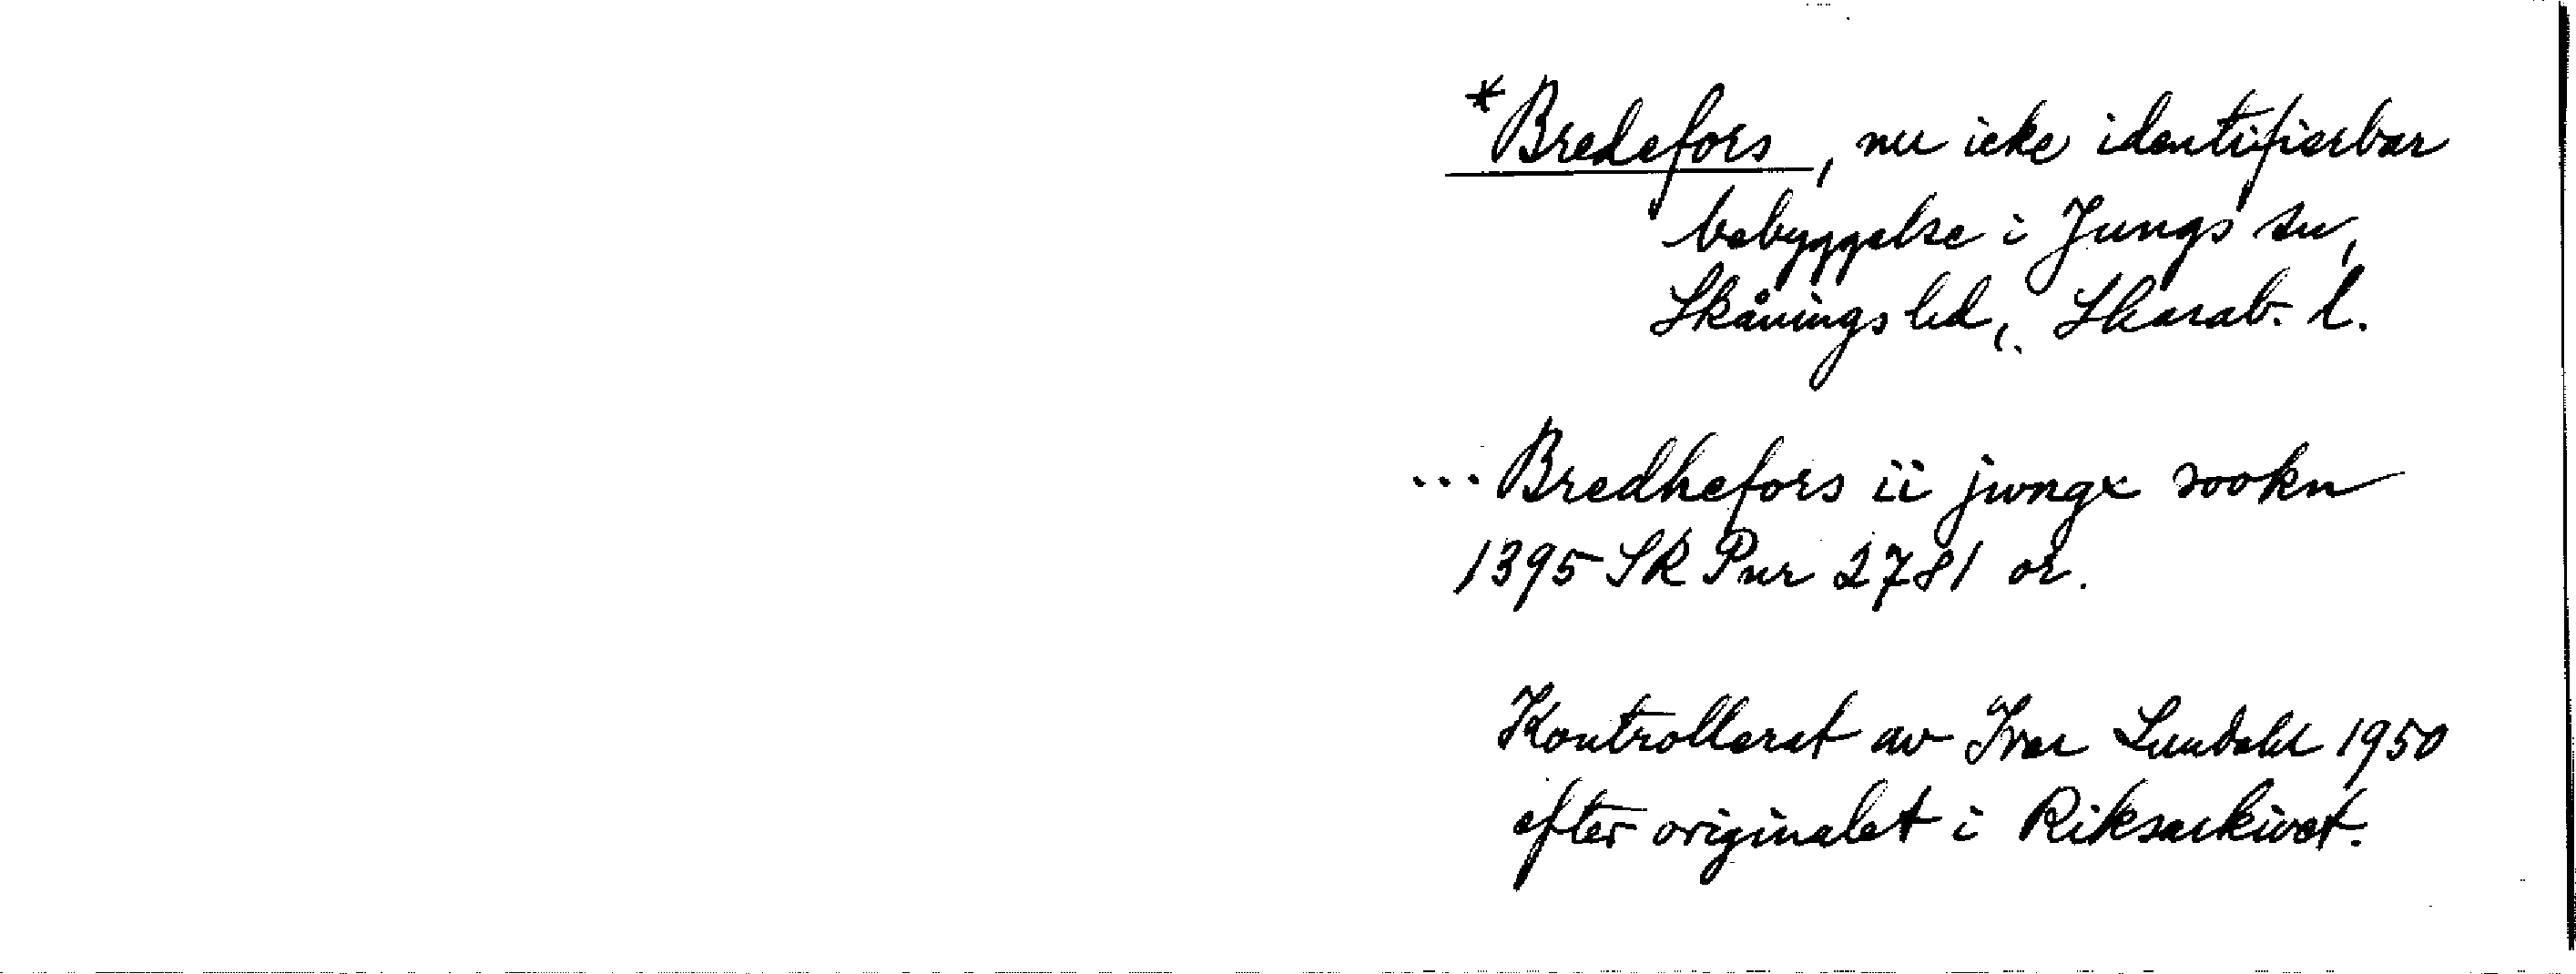 *Bredefors, nu icke identifierbar
bebyggelse i Jungs sn,
Skånings hd, Skarab. l.
... Bredhefors ii jwngx sookn
1395 SRPnr 2781 or.
Kontrollerat av Ivar Lundahl 1950
efter originalet i Riksarkivet.